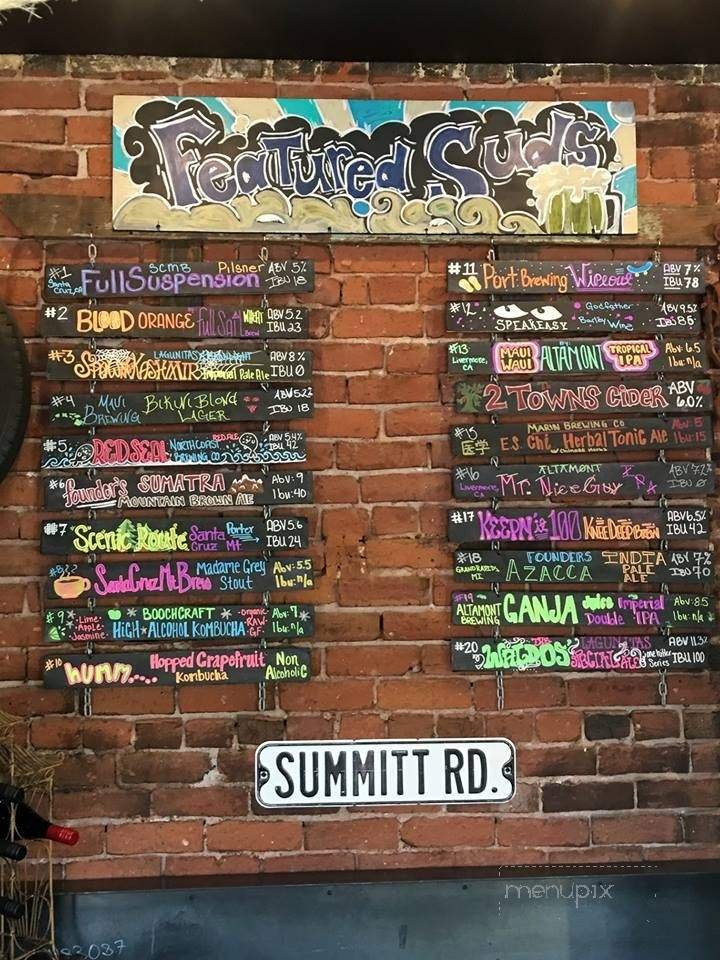 Featured Suds
#1 SCMB Pilsner ABV 5%
Santa Cruz, CA FullSuspension IBU 18
#2 BLOOD ORANGE Full Sail WHEAT Brew ABV 5.2 IBU 23
#3 LAGUNITAS ABV 8%
Imperial Pale Ale IBU 0
#4 MAUI BREWING BIKINI BLOND LAGER IBU 18
#5 RED SEAL RED ALE NORTH COAST BREWING CO ABV 5.4%
#6 founder's SUMATRA Abv: 9
MOUNTAIN BROWN ALE Ibu: 40
#7 Scenic Route Santa Cruz Mt Porter ABV 5.6 IBU 24
#8 Santa Cruz Mt Brew Madame Grey Stout Abv: 5.5 Ibu: n/a
#9 Lime Apple Jasmine BOOCHCRAFT Organic RAW GF Abv: 7%
HIGH ALCOHOL KOMBUCHA Ibu: n/a
#10 HUMM.... Hopped Grapefruit Kombucha Non Alcoholic
#11 Port Brewing Wipeout ABV 7% IBU 78
#12 SPEAKEASY Godfather Barley Wine ABV 9.5% IBU 86
#13 Livermore, CA MAUI WAUI ALTAMONT TROPICAL IPA Abv: 6.5 Ibu: n/a
2 TOWNS CIDER ABV 6.0%
#15 医学 MARIN BREWING CO Abv: 5
E.S. Chi Herbal Tonic Ale Ibu: 15
#16 Livermore, CA ALTAMONT Mr. Nice Guy IPA ABV 7.2%
#17 KEEPN it 100 KNEE DEEP Brewn ABV 6.5% IBU 42
#18 GRAND RAPIDS MI FOUNDERS AZACCA INDIA PALE ALE ABV 7% IBU 70
#19 ALTAMONT BREWING GANJA Juice Imperial Double IPA Abv: 8.5 Ibu: n/a
#20 THE WALDOS' LAGUNITAS SPECIAL ALE one hitter Series ABV 11.3% IBU 100
SUMMITT RD.
menupix